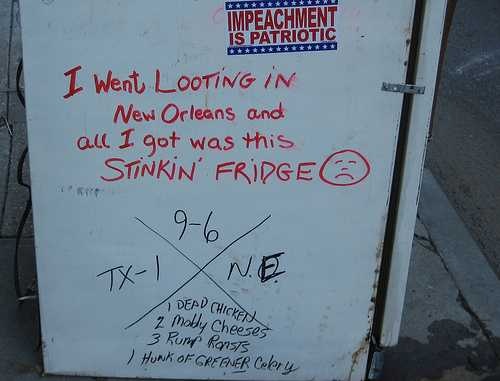 IMPEACHMENT
IS PATRIOTIC
I Went LOOTING iN
New Orleans and
all I got was this
STiNKiN' FRIDGE
9-6
TX-1 N.E.
1 DEAD CHICKEN
2 Moldy Cheeses
3 Rump Roasts
1 HUNK OF GREENER Celery